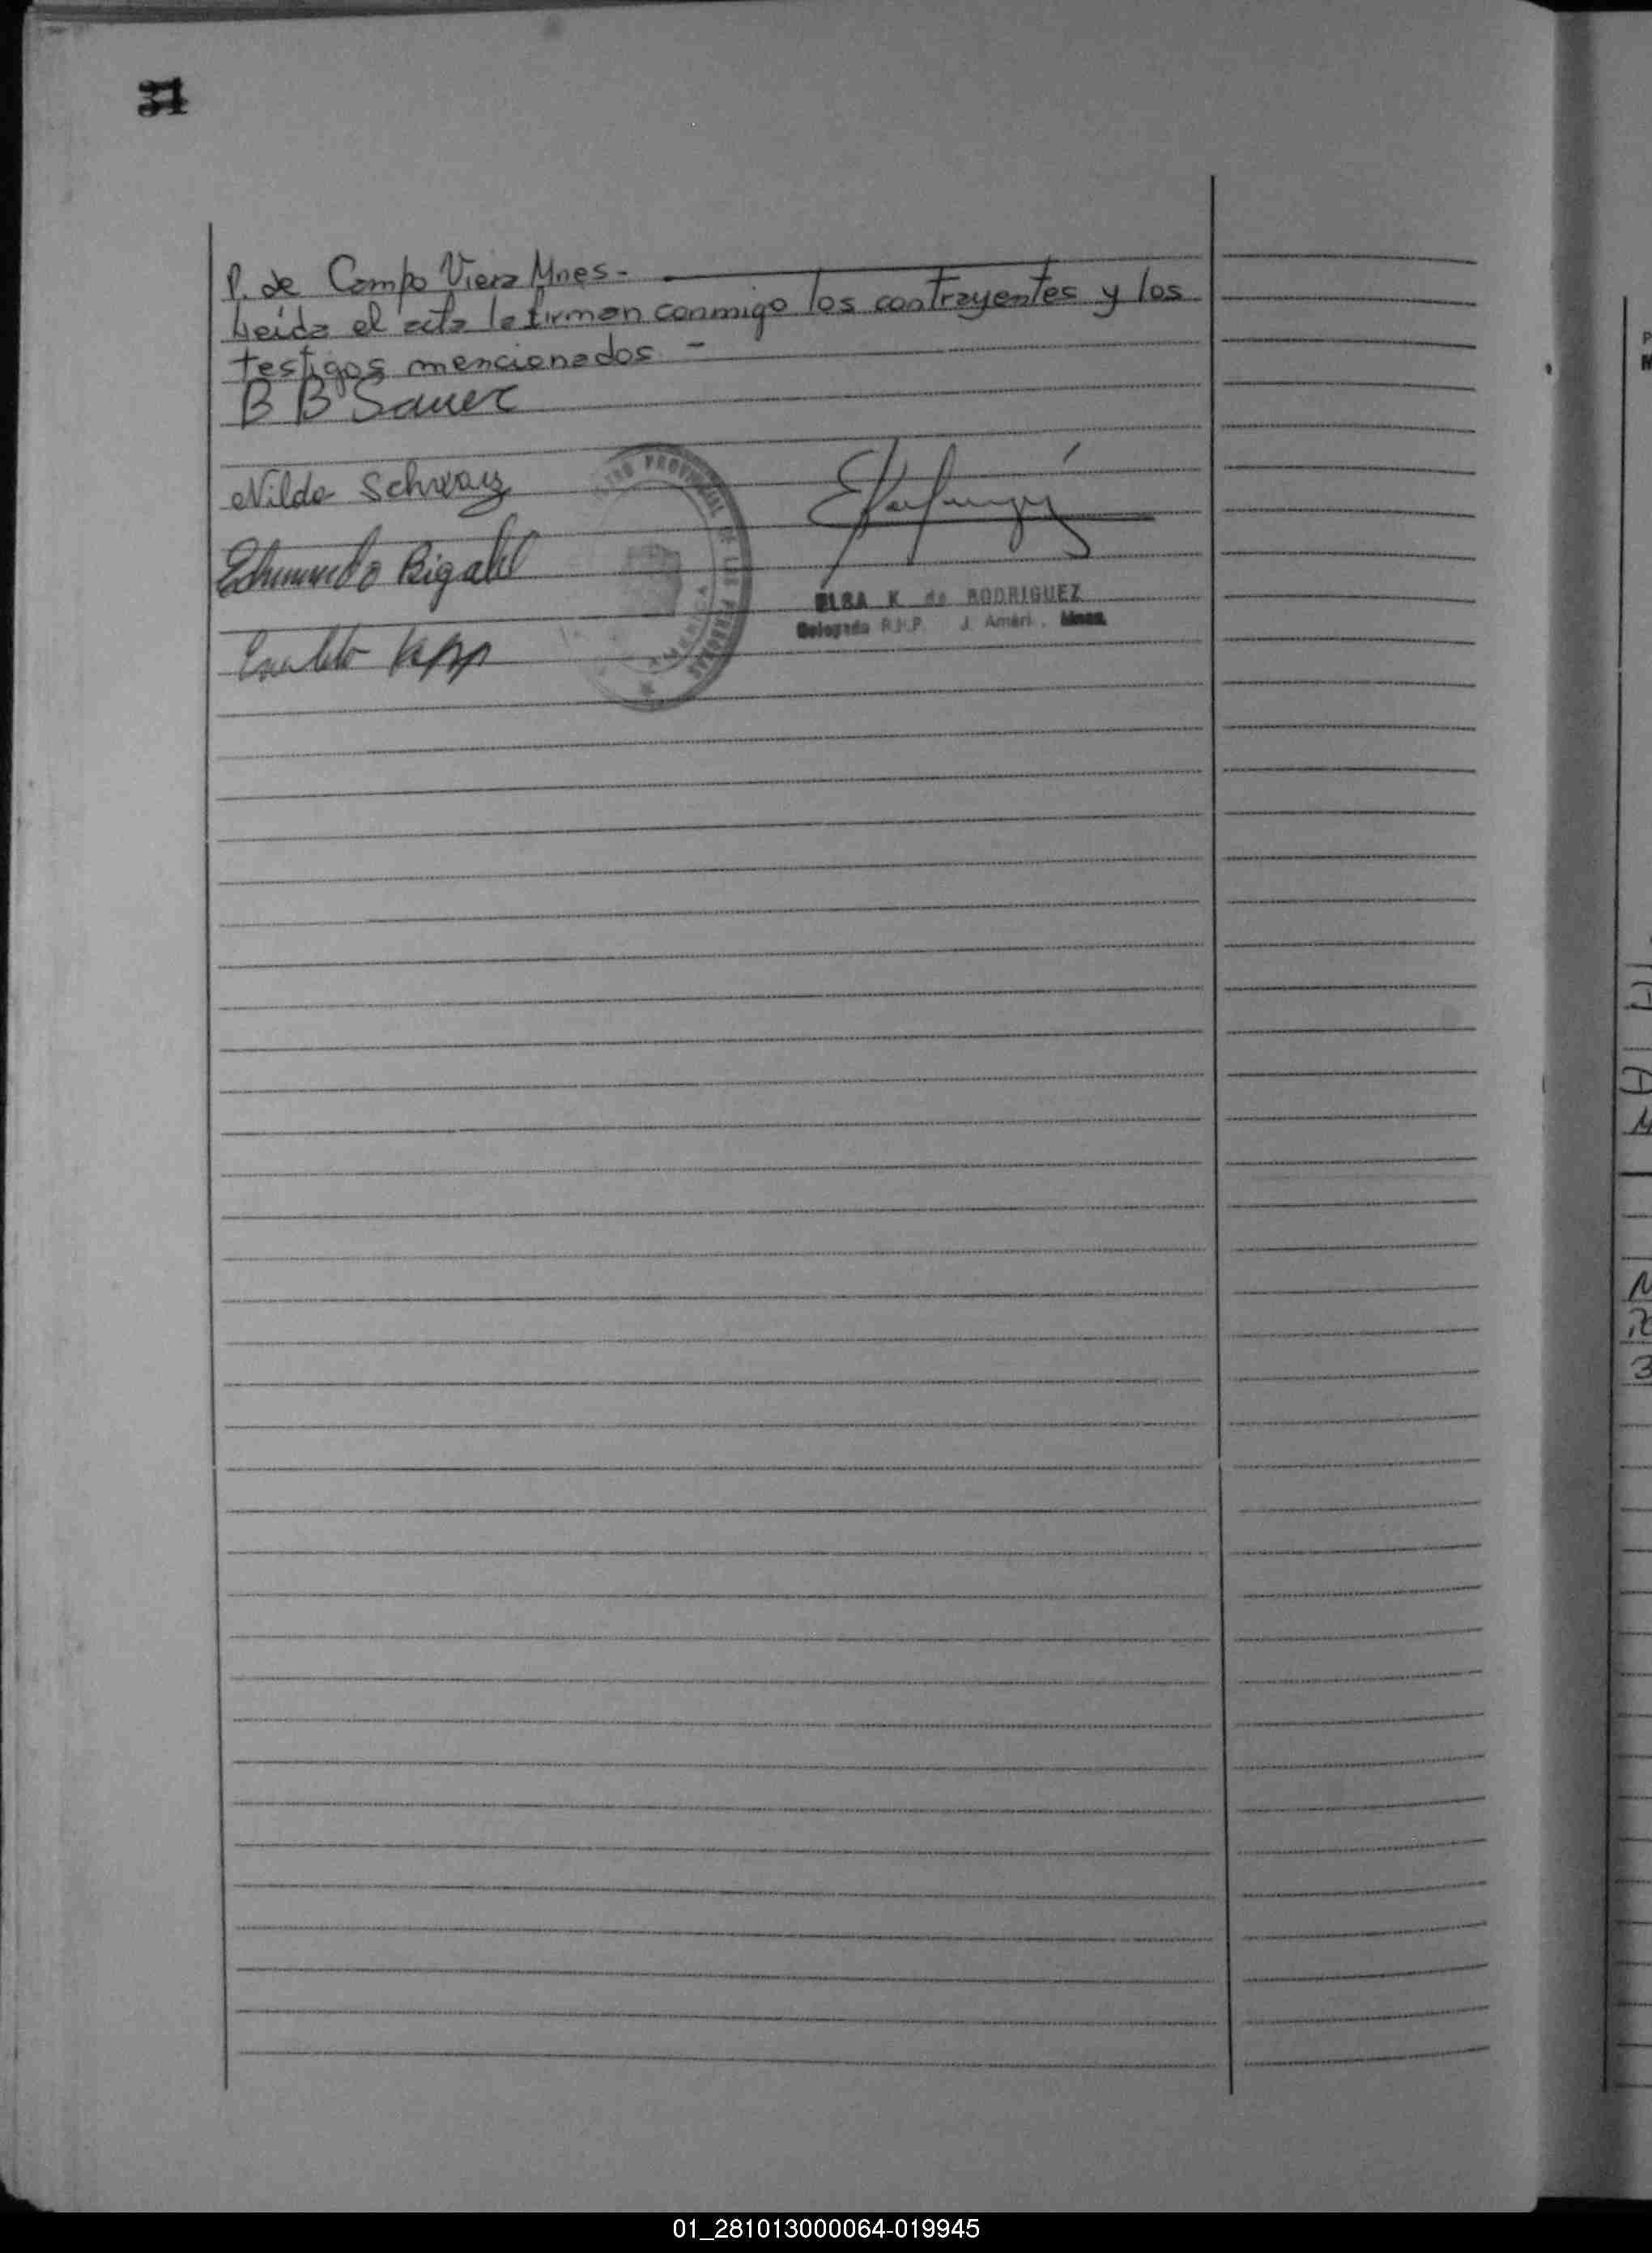 31
P. de Campo Viera Mnes.-
Leída el acta la firman conmigo los contrayentes y los
testigos mencionados -
B B Sauer
Nilda Schwarz
PROVINCIAL DE LAS PERSONAS
Edmundo
ELSA K de RODRIGUEZ
Delegada R.P.P. J. Améri. Mnes.
01_281013000064-019945